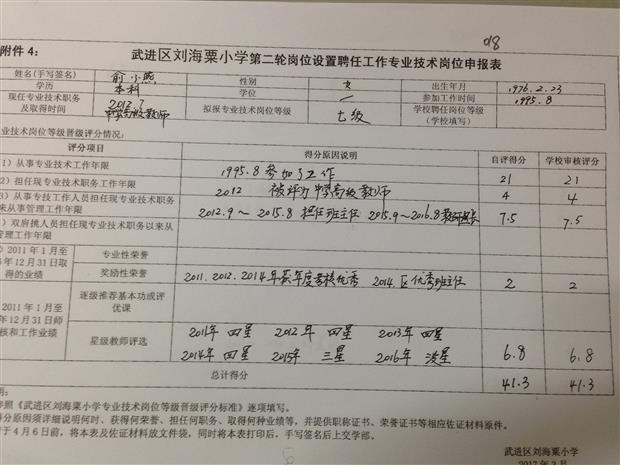 98
附件 4：
武进区刘海粟小学第二轮岗位设置聘任工作专业技术岗位申报表
姓名(手写签名) 俞小燕 性别 女 出生年月 1976.2.23
学历 本科 学位 / 参加工作时间 1995.8
现任专业技术职务及取得时间 2012.7 中学高级教师 拟报专业技术岗位等级 七级 学校聘任岗位等级（学校填写）
业技术岗位等级晋级评分情况：
评分项目 得分原因说明 自评得分 学校审核评分
1）从事专业技术工作年限 1995.8参加了工作 21 21
2）担任现专业技术职务工作年限 2012 被评为中学高级教师 4 4
3）从事专技工作人员担任现专业技术职务以来从事管理工作年限 2012.9～2015.8 担任班主任 2015.9～2016.8 7.5 7.5
）双肩挑人员担任现专业技术职务以来从事管理工作年限
2011年1月至年12月31日取得的业绩 专业性荣誉
奖励性荣誉 2011.2012.2014年获年度考核优秀 2014.区优秀班主任 2 2
2011年1月至年12月31日师核和工作业绩 逐级推荐基本功或评优课
星级教师评选 2011年 四星 2012年 四星 2013年 四星
2014年 四星 2015年 三星 2016年 凌星 6.8 6.8
总计得分 41.3 41.3
明：
参照《武进区刘海粟小学专业技术岗位等级晋级评分标准》逐项填写。
得分原因须详细说明何时、获得何荣誉、担任何职务、取得何种业绩等，并提供职称证书、荣誉证书等相应佐证材料原件。
于4月6日前，将本表及佐证材料放文件袋，同时将本表打印后，手写签名后上交学部。
武进区刘海粟小学
2017年3月